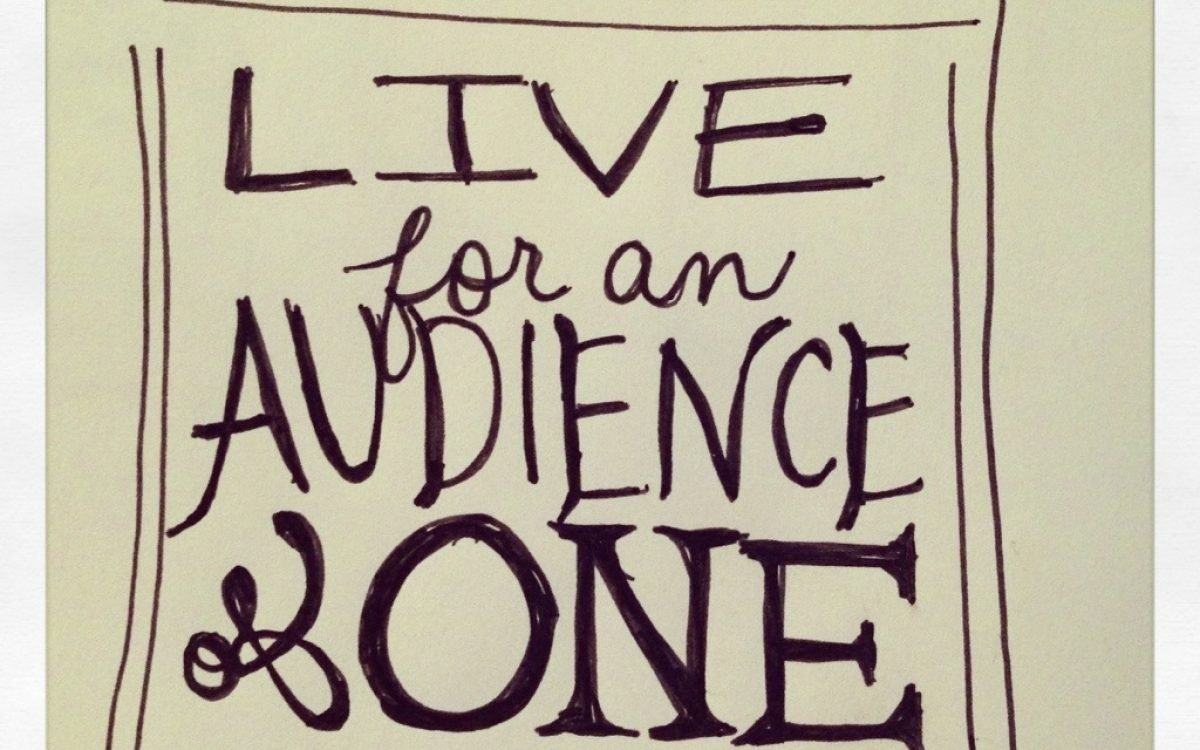 LIVE
for an
AUDIENCE
of ONE